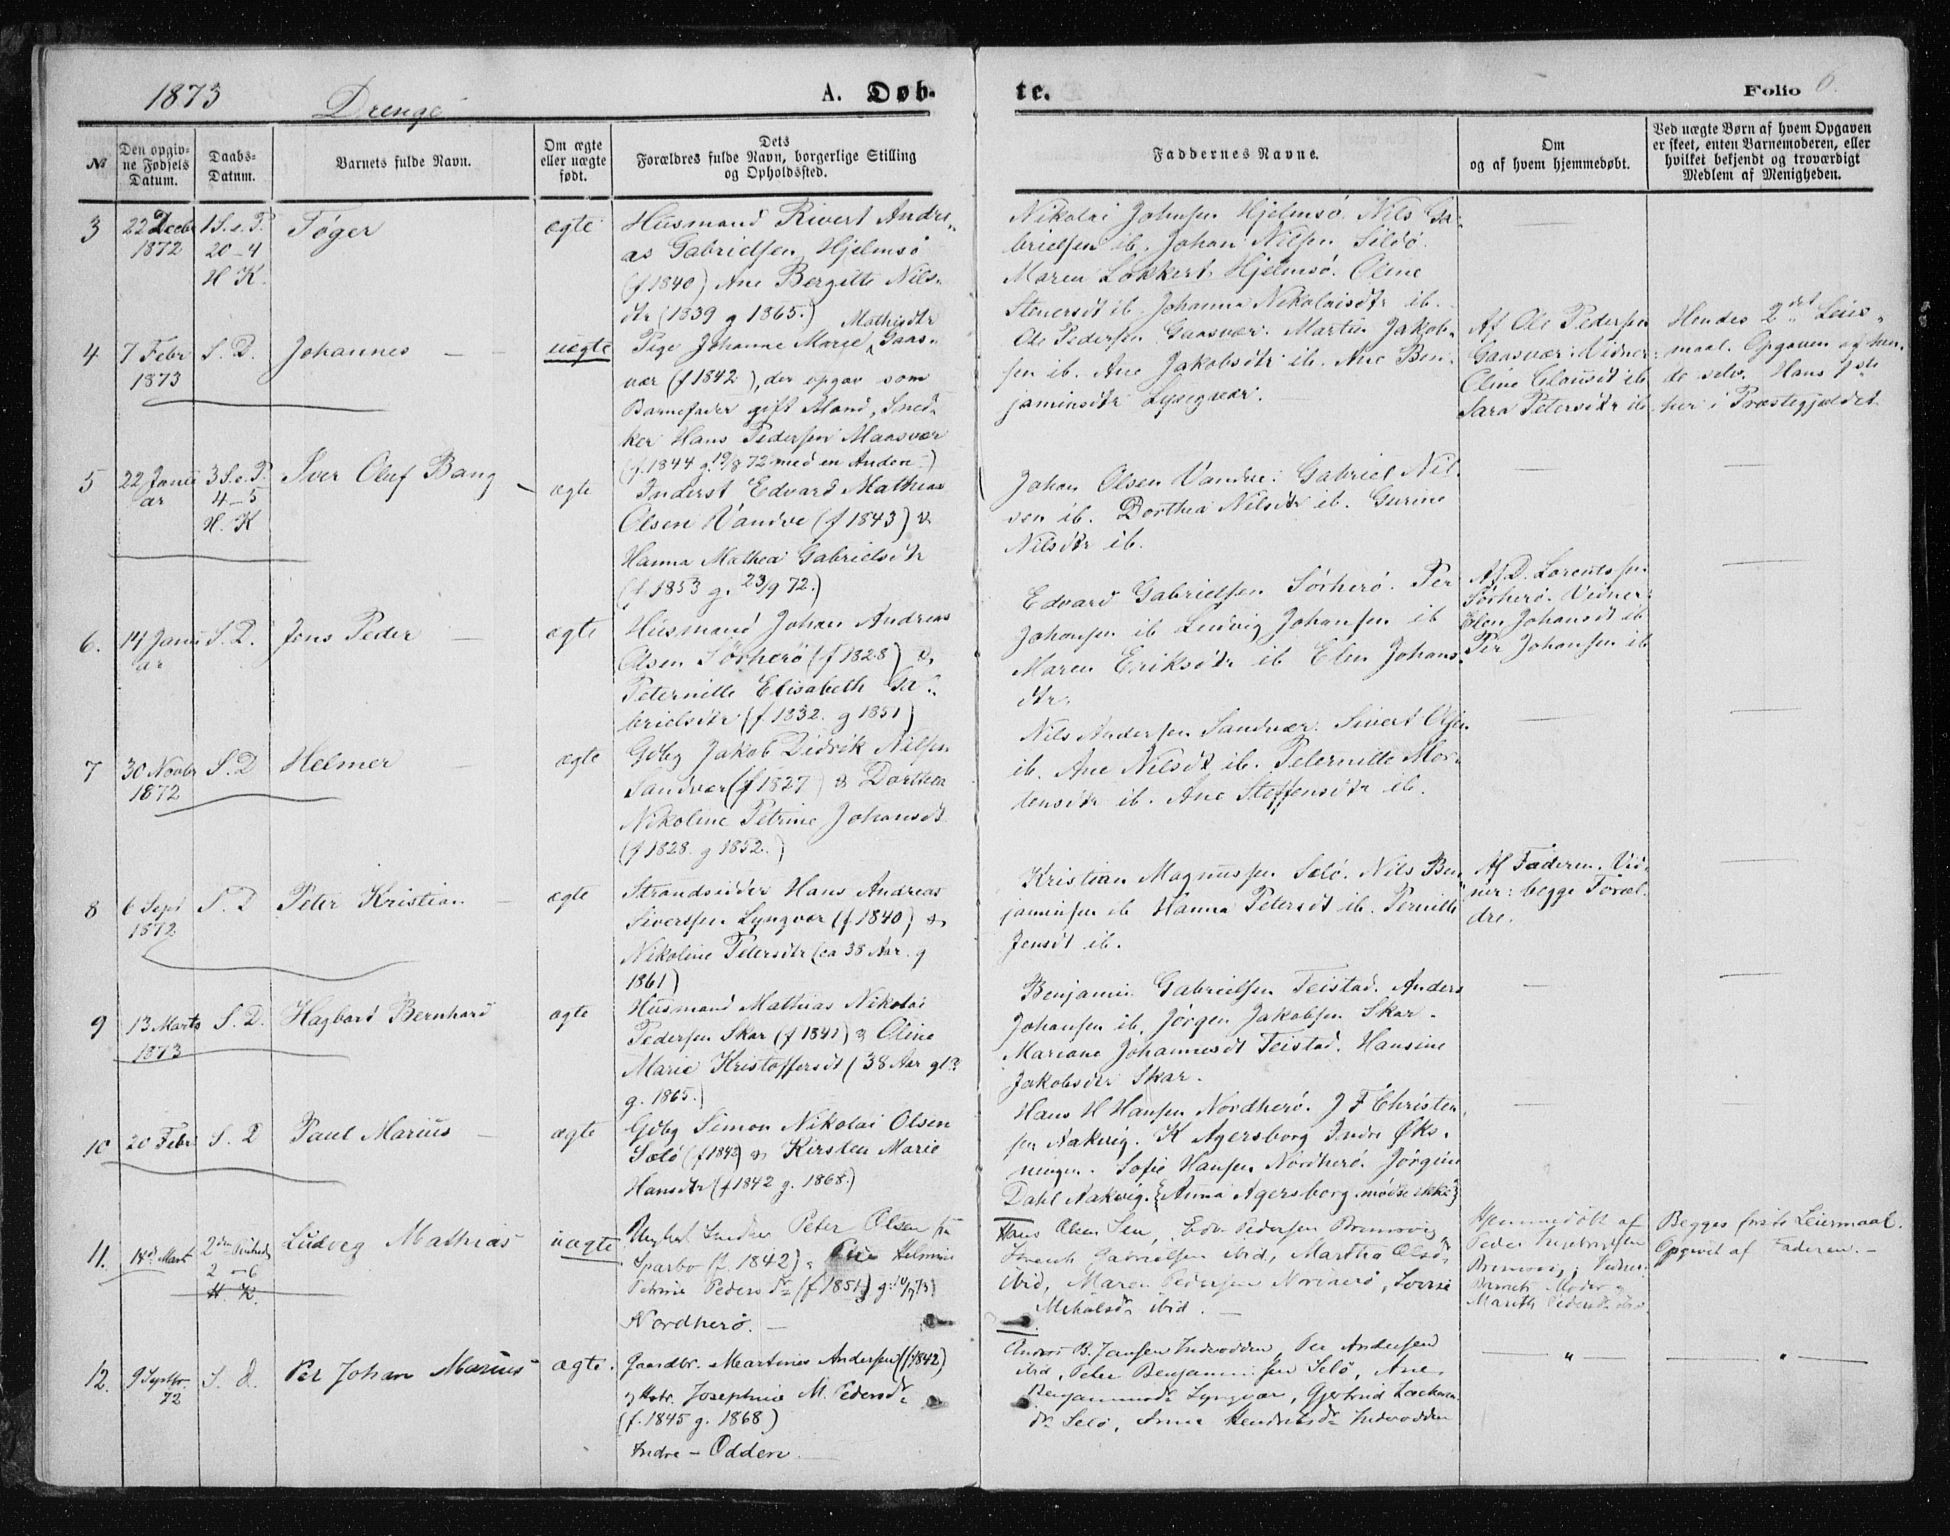 1873 Drenge A. Døb-
te. Folio 6.
№
Den opgiv-
ne Fødsels
Datum.
Daabs-
Datum.
Barnets fulde Navn.
Om ægte
eller uægte
født.
Dets
Forældres fulde Navn, borgerlige Stilling
og Opholdssted.
Faddernes Navne.
Om
og af hvem hjemmedøbt.
Ved uægte Børn af hvem Opgaven
er skeet, enten Barnemoderen, eller
hvilket bekjendt og troværdigt
Medlem af Menigheden.
3
22 Decbr
1872
1 S. e. P.
20-4
H. K.
Tøger
ægte
Husmand Sivert Andre-
as Gabrielsen Hjelmsø
(f 1840) Ane Bergitte Nils-
dtr (1839 g 1865.)
Nikolai Johnsen Hjelmsø. Nils Ga-
brielsen ib. Johan Nilsen Sildø.
Maren Lokkert Hjelmsø. Oline
Stenersdt ib. Johanna Nikolaisdtr ib.
4
7 Febr
1873
S. D.
Johannes
uægte
Mathisdtr
Pige Johanne Marie Gaas-
vær (f 1842), der opgav som
Barnefader gift Mand, Sned-
ker Hans Pedersen Maasvær
(f. 1844 g. 19/8 72 med en Anden.)
Ole Pedersen Gaasvær. Martin Jakob-
sen ib. Ane Jakobsdtr ib. Ane Ben-
jaminsdtr Lyngvær.
Af Ole Pedersen
Gaasvær: Vidner:
Oline Clausdt ib
Sara Petersdtr ib
Hendes 2det Leier-
maal. Opgaven af hen-
de selv. Hans 1ste
her i Præstegjeldet
5
22 Janu
ar
3 S. e. P.
4-5
H. K
Iver Oluf Bang
ægte
Inderst Edvard Mathias
Olsen Vandve (f 1843) &
Hanna Mathea Gabrielsdtr
(f. 1853 g. 23/9 72.)
Johan Olsen Vandve: Gabriel Nil-
sen ib. Dorthea Nilsdtr ib. Gurine
Nilsdtr ib.
6.
14 Janu
ar
S. D.
Jens Peder
ægte
Husmand Johan Andreas
Olsen Sørherø (f 1828) &
Peternille Elisabeth Ga-
brielsdtr (f 1832. g 1851)
Edvard Gabrielsen Sørherø. Per
Johansen ib Ludvig Johansen ib
Maren Eriksdtr ib Elen Johans-
dtr.
Af D. Lorentsen
Sørherø. Vidner:
Elen Johansdt ib
Per Johansen ib
7
30 Novbr
1872
S. D
Helmer
ægte
Gdbg Jakob Didrik Nilsen
Sandvær (f 1827) & Dorthea
Nikoline Petrine Johansdt
(f 1828. g 1852.)
Nils Andersen Sandvær. Sivert Olsen
ib. Ane Nilsdt ib. Peternille Mor-
tensdtr ib. Ane Steffensdtr ib.
8
6 Sept
1872
S. D
Peter Kristian
ægte
Strandsidder Hans Andreas
Sivertsen Lyngvær (f. 1840) &
Nikoline Petersdtr (ca 38 Aar. g
1861)
Kristian Magnussen Selø. Nils Ben-
jaminsen ib Hanna Petersdt ib. Pernille
Jensdt ib.
Af Faderen. Vid-
ner: begge Foræl-
dre.
9
13 Marts
1873
S. D.
Hagbard Bernhard
ægte
Husmand Mathias Nikolai
Pedersen Skar (f 1841) & Oline
Marie Kristoffersdt (38 Aar gl.
g. 1865.)
Benjamin Gabrielsen Teistad. Anders
Johansen ib. Jørgen Jakobsen Skar.
Mariane Johannesdt Teistad. Hansine
Jakobsdtr Skar.
10
20 Febr
S. D
Paul Marius
ægte
Gdbg Simon Nikolai Olsen
Selø (f 1842) & Kirsten Marie
Hansdtr (f 1842 g. 1868.)
Hans H Hansen Nordherø. J F Christen-
sen Aakvig. K Agersborg Indre Øks-
ningen. Sofie Hansen Nordherø. Jørgine
Dahl Aakvig. (Anna Agersborg mødte ikke)
11.
18d Marts
2den
2-6
H. K.
Ludvig Mathias
uægte
Ungkarl Peter Olsen fra
Sparbo (f. 1842), Pige Helmine
Petrine Pedersdr (f 1851)
Nordherø.
Hans Olsen, Edv. Pedersen
Gabrielsen ibid, Martha Olsdr
ibid, Maren Pedersen Nordherø, Lovise
ibid.
Hjemmedøbt af
Peder
Vidner:
Barnets Moder og
Pedersdr ibid
Begges første Leiermaal.
Opgivet af Faderen.
12.
9 Septbr.
72
S. d.
Per Johan Marius
ægte.
Gaardbr. Martinus Andersen (f 1842)
og Hstr. Josephine M. Pedersdr
(f. 1845 g. 1868)
Indre-Odden.
Anders B. Jensen Indreodden, Per Andersen
ibid, Peter Benjaminsen Selø, Ane
Benjaminsdr Lyngvær, Gjertrud
dr Selø, Anne Hendriksdr Indreodden